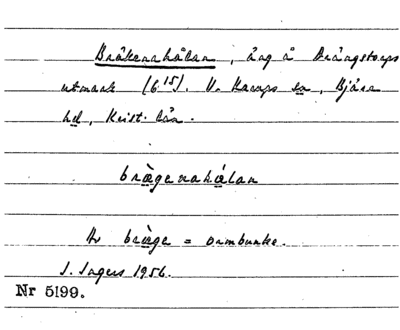 Bräkenahålan, äng å Drängstorps
utmark (6¹⁵). V. Karups sn, Bjäre
hd, Krist. län.
brägenahålan
Av bräge = ormbunke.
I. Ingers 1956.
Nr 5199.